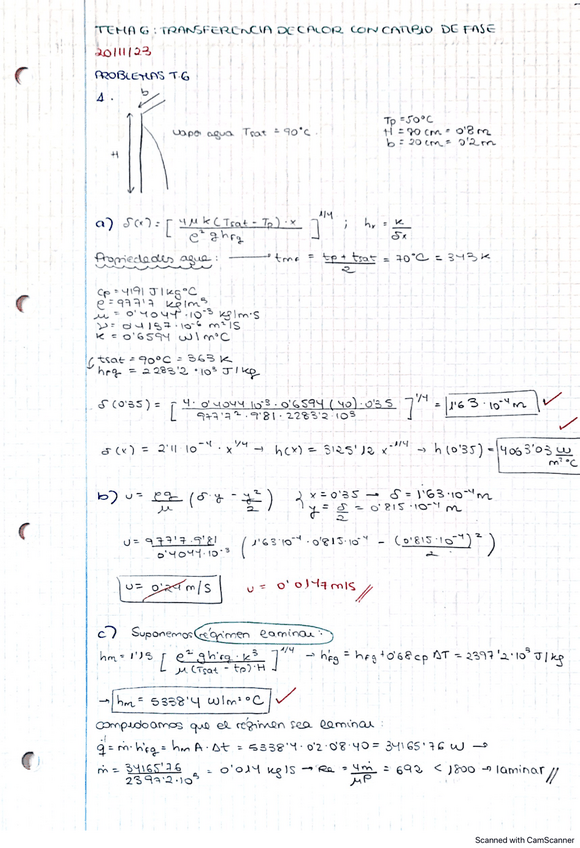 TEMA 6: TRANSFERENCIA DE CALOR CON CAMBIO DE FASE
20/11/23
PROBLEMAS T.6
1.
b
H
vapor agua Tsat = 90°C.
Tp = 50°C
H = 80 cm = 0'8 m
b = 20 cm = 0'2 m
a) δ(x) = [ 4μ k (Tsat - Tp) · x / ρ² g hfg ]^1/4 ; hx = k / δx
Propiedades agua: → tmf = tp + tsat / 2 = 70°C = 343 K
cp = 4191 J/kg°C
ρ = 977'7 kg/m³
μ = 0'4044·10⁻³ kg/m·s
ν = 0'4137·10⁻⁶ m²/s
k = 0'6594 W/m°C
tsat = 90°C = 363 K
hfg = 2283'2 · 10³ J/kg
δ(0'35) = [ 4 · 0'4044·10⁻³ · 0'6594 (40) · 0'35 / 977'7² · 9'81 · 2283'2·10³ ]^1/4 = 1'63 · 10⁻⁴ m
δ(x) = 2'11·10⁻⁴ · x^1/4 → h(x) = 3125'12 x^-1/4 → h(0'35) = 4063'03 W/m²°C
b) u = ρg/μ (δ·y - y²/2) { x = 0'35 → δ = 1'63·10⁻⁴ m
y = δ/2 = 0'815·10⁻⁴ m
u = 977'7·9'81 / 0'4044·10⁻³ ( 1'63·10⁻⁴ · 0'815·10⁻⁴ - (0'815·10⁻⁴)²/2 )
u = 0'24 m/s u = 0'0147 m/s
c) Suponemos régimen laminar:
hm = 1'15 [ ρ² g h'fg · k³ / μ (Tsat - tp)·H ]^1/4 → h'fg = hfg + 0'68 cp ΔT = 2397'2·10³ J/kg
→ hm = 5338'4 W/m²°C
comprobamos que el régimen sea laminar:
q̇ = ṁ·h'fg = hm A·Δt = 5338'4 · 0'2 · 0'8 · 40 = 34165'76 W →
ṁ = 34165'76 / 2397'2·10³ = 0'014 kg/s → Re = 4ṁ/μP = 692 < 1800 → laminar
Scanned with CamScanner